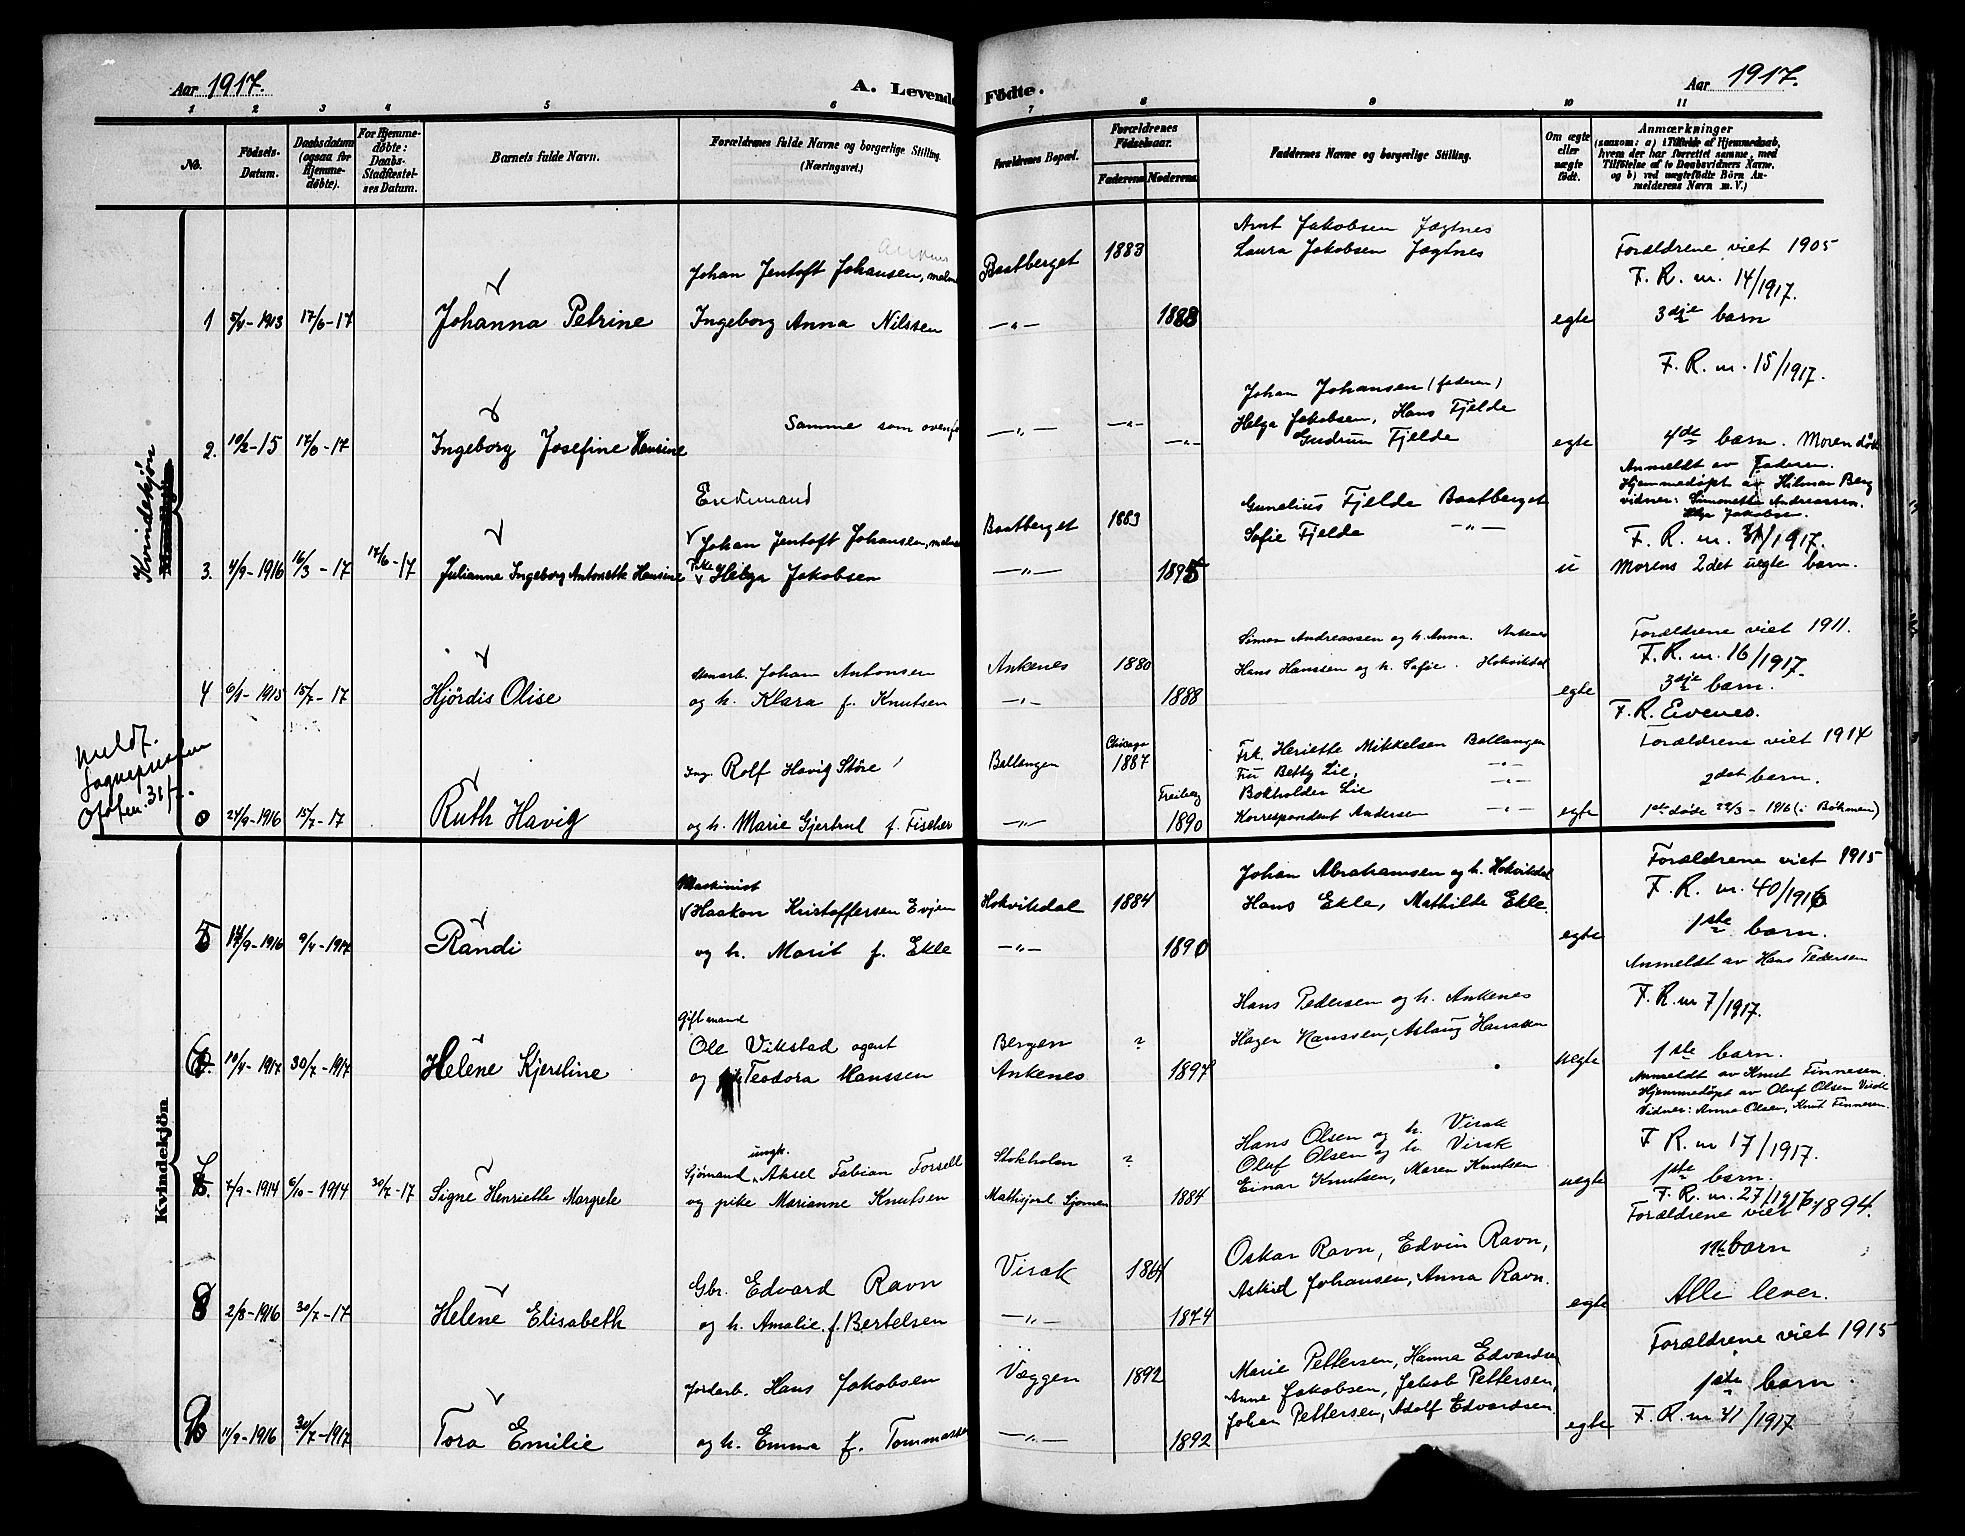 Aar 1917.
A. Levende Födte.
Aar 1917.
1 2 3 4 5 6 7 8 9 10 11
No.
Födsels-Datum.
Daabsdatum (ogsaa for Hjemmedøbte).
For Hjemmedöbte: Daabs-Stadfæstelses Datum.
Barnets fulde Navn.
Forældrenes fulde Navne og borgerlige Stilling. (Næringsvei.)
Forældrenes Bopæl.
Forældrenes Födselsaar.
Faderens Moderens
Faddernes Navne og borgerlige Stilling.
Om ægte eller uægte födt.
Anmærkninger
(saasom: a) i Tilfælde af Hjemmedaab,
hvem der har forrettet samme, med
Tilföielse af to Daabsvidners Navne,
og b) ved uægtefödte Börn An-
melderens Navn m. V.)
Kvindekjøn
1 5/4-1913 17/6-17 Johanna Petrine
Johan Jentoft Johansen,
Ingeborg Anna Nilssen
Baatberget 1883
—"— 1888
Arnt Jakobsen Jægtnes
Laura Jakobsen Jægtnes
egte
Forældrene viet 1905
F. R. nr. 14/1917.
3dje barn
2. 10/2-15 17/6-17 Ingeborg Josefine Hansine
Samme som ovenfor
—"— —"— —"—
Johan Johansen (faderen)
Helga Jakobsen, Hans Fjelde
Gudrun Fjelde
egte
F. R. nr. 15/1917.
4de barn. Moren død
3. 4/9-1916 16/3-17 17/6-17 Julianne Ingeborg Antonette Hansine
Enkemand
Johan Jentoft Johansen,
Pike Helga Jakobsen
Baatberget 1883
—"— 1895
Gunelius Fjelde Baatberget
Sofie Fjelde —"—
u
Anmeldt av Faderen.
Hjemmedøpt av Hilmar Berg
vidner: Simonette Andreassen.
Helga Jakobsen.
F. R. nr. 31/1917.
Morens 2det uegte barn.
4 6/9-1915 15/7-17 Hjørdis Olise
Johan Antonsen
og h. Klara f. Knutsen
Ankenes 1880
—"— 1888
Simon Andreassen og h. Anna. Ankenes
Hans Hanssen og h. Sofie. Hokvikdal
egte
Forældrene viet 1911.
F. R. nr. 16/1917.
3dje barn.
meldt.
Sognepresten
Ofoten. 31/7.
0 24/9-1916 15/7-17 Ruth Havig
Ing. Rolf Havig Støre
og h. Marie Gjertrud f. Fischer
Ballangen Chicago 1887
—"— Freiberg 1890
Frk. Henriette Mikkelsen Ballangen
Fru Betty Lie, —"—
Bokholder Lie —"—
Korrespondent Andersen —"—
egte
F. R. Evenes.
Forældrene viet 1914
2det barn.
1ste døde 22/3-1916 (i Bøhmen)
Kvindekjön
5 /9-1916 9/4-1917 Randi
Maskinist
Haakon Kristoffersen Evjen
og h. Marit f. Ekle
Hokvikdal 1884
—"— 1890
Johan Abrahamsen og h. Hokvikdal
Hans Ekle, Mathilde Ekle.
egte
Forældrene viet 1915
F. R. nr. 40/1916
1ste barn.
6. 10/4-1917 30/7-1917 Helene Kjerstine
Gift mand
Ole Vikstad agent
og Teodora Hanssen
Bergen ?
Ankenes 1897
Hans Pedersen og h. Ankenes
Hagen Hanssen, Aslaug Hanssen
uegte
Anmeldt av Hans Pedersen
F. R. nr 7/1917.
1ste barn.
7. 7/9-1914 6/10-1914 30/7-17 Signe Henriette Margrete
ungk.
Sjømand, Aksel Fabian Forsell
og pike Marianne Knutsen
Stokholm ?
1884
Hans Olsen og h. Virak
Oluf Olsen og h. Virak
Einar Knutsen, Maren Knutsen
uegte
Anmeldt av Knut Finnesen.
Hjemmedøpt av Oluf Olsen Virak
Vidner: Anna Olsen, Knut Finnesen.
F. R. nr 17/1917.
1ste barn.
8 2/8-1916 30/7-17 Helene Elisabeth
Gbr. Edvard Ravn
og h. Amalie f. Bertelsen
Virak 1864
—"— 1874
Oskar Ravn, Edvin Ravn,
Astrid Johansen, Anna Ravn.
egte
F. R. nr. 27/1917
Forældrene viet 1894.
11te barn
Alle lever.
9 11/9-1916 30/7-1917 Tora Emilie
Jordarb. Hans Jakobsen
og h. Emma f. Tommasen
Væggen 1892
—"— 1892
Marie Pettersen, Hanna Edvardsen
Anne Jakobsen, Jakob Pettersen,
Johan Pettersen, Adolf Edvardsen.
egte
Forældrene viet 1915
1ste barn.
F. R. nr 41/1917